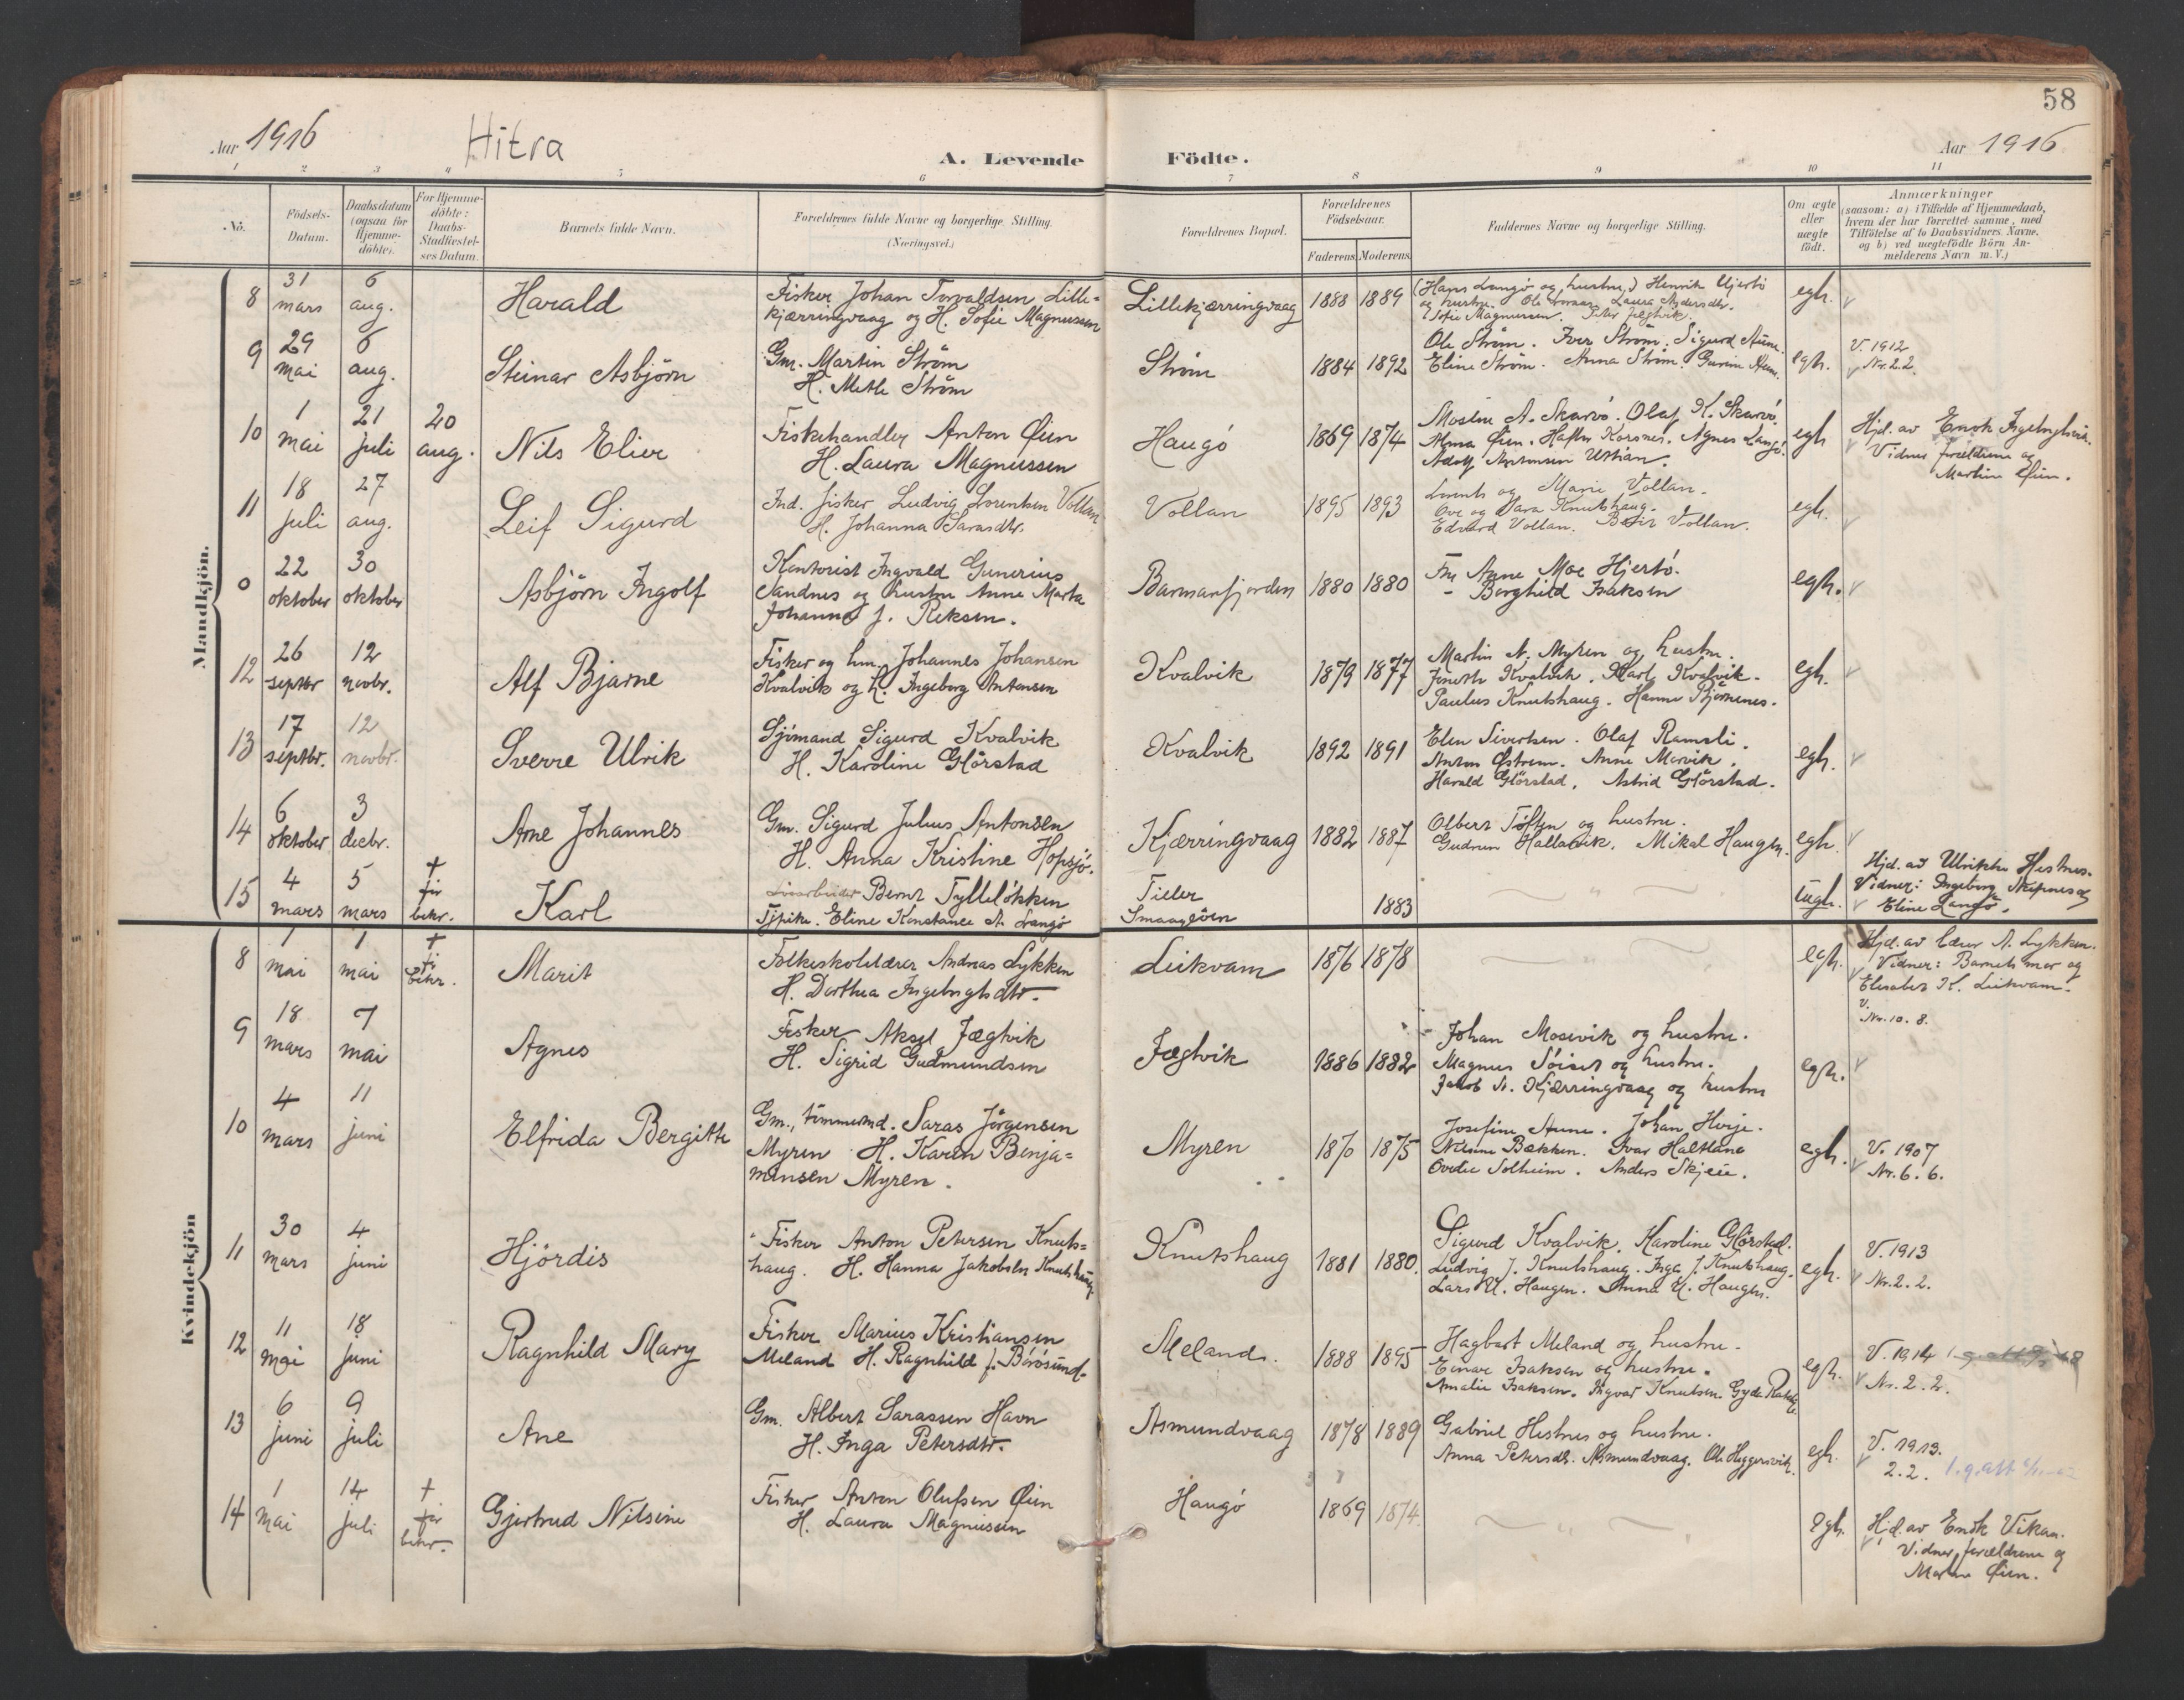 58
Aar 1916 Hitra A. Levende Födte. Aar 1916
1 2 3 4 5 6 7 8 9 10 11
No. Födsels-Datum. Daabsdatum (ogsaa for Hjemme-döbte). For Hjemme-döbte: Daabs-Stadfæstel-ses Datum. Barnets fulde Navn. Forældrenes fulde Navne og borgerlige Stilling. (Næringsvei.) Forældrenes Bopæl. Forældrenes Födselsaar. Faderens Moderens Faddernes Navne og borgerlige Stilling. Om ægte eller uægte födt. Anmærkninger (saasom: a) i Tilfælde af Hjemmedaab, hvem der har forrettet samme, med Tilföielse af to Daabsvidners Navne, og b) ved uægtefödte Börn An-melderens Navn m.V.)
Mandkjön.
8 31 mars 6 aug. Harald
Fisker Johan Torvaldsen Lille=
kjærringvaag og H. Sofie Magnussen
Lillekjærringvaag 1888 1889
(Hans Langö og hustru,) Henrik Hjertö
og hustru. Ole Laura Andersdtr.
Sofie Magnussen. Peter Jægtvik.
egh.
9 29 mai 6 aug. Steinar Asbjörn
Gm. Martin Ström
H. Metle Ström
Ström 1884 1892
Ole Ström. Iver Ström. Sigurd Aune.
Eline Ström. Anna Ström. Gurine Aune.
egh.
V. 1912
Nr. 2.2.
10 1 mai 21 juli 20 aug. Nils Elier
Fiskehandler Anton Øien
H. Laura Magnussen
Haugö 1869 1874
A. Skarvö. Olaf K. Skarvö.
Anna Øien. Korsnes. Agnes Langö.
Adolf Antonsen Ustian.
egh
Hjd. av Enok Ingebrigtsvik.
Vidner forældrene og
Martin Øien.
11 18 juli 27 aug. Leif Sigurd
Ind. fisker Ludvig Lorentsen Vollan
H. Johanna Sarasdtr.
Vollan 1895 1893
Lorents og Marie Vollan.
Ove og Sara Knutshaug.
Edvard Vollan. Vollan.
egh.
0 22 oktober 30 oktober Asbjörn Ingolf
Kontorist Ingvald Gunerius
Sandnes og hustru Anne Marta
Johanna f. Reksen.
Barmanfjorden 1880 1880
Fru Anne Moe Hjertö.
- Borghild Isaksen
egh.
12 26 septbr 12 novbr. Alf Bjarne
Fisker og hm. Johannes Johansen
Kvalvik og h. Ingeborg Antonsen
Kvalvik 1879 1877
Martin N. Myren og hustru.
Kvalvik. Karl Kvalvik.
Paulus Knutshaug. Hanna Bjørkenes.
egh.
13 17 septbr. 12 novbr. Sverre Ulrik
Sjömand Sigurd Kvalvik
H. Karoline Glörstad
Kvalvik 1892 1891
Elen Sivertsen. Olaf Ramsli.
Anton Østrem. Anne Marvik.
Harald Glörstad. Astrid Glörstad.
egh.
14 6 oktober 3 decbr. Arne Johannes
Gm. Sigurd Julius Antonsen
H. Anna Kristine Hopsjö.
Kjærringvaag 1882 1887
Olbert Töften og hustru.
Gudrun Hallavik. Mikal Haugen.
egh.
15 4 mars 5 mars † för bekr. Karl
Bernt Tylleløkken
Tjpike. Eline Konstance A. Langö
Tiller
Smaagöien 1883
uegh.
Hjd. av Ulrikke Hestnes.
Vidner: Ingeborg Skipnes og
Eline Langö.
Kvindekjön
8 1 mai 1 mai † för bekr. Marit
Folkeskolelærer Andreas Lykken
H. Dorthea Ingebrigtsdtr.
Leikvam 1876 1878
egh.
Hjd. av lærer A. Lykken.
Vidner: Barnets mor og
Elisabet K. Leikvam.
V.
Nr. 10. 8.
9 18 mars 7 mai Agnes
Fisker Aksel Jægtvik
H. Sigrid Gudmundsen
Jægtvik 1886 1882
Johan Mosevik og hustru.
Magnus og hustru.
Jakob A. Kjærringvaag og hustru
egh.
10 4 mars 11 juni Elfrida Bergitte
Gm., tömmermd. Saras Jörgensen
Myren H. Karen Benja=
minsen Myren.
Myren 1870 1875
Josefine Aune. Johan Hvije.
Nilsine Bækken. Ivar Haltland
Ovedie Solheim. Anders Skjeie.
egh.
V. 1907
Nr. 6. 6.
11 30 mars 4 juni Hjördis
Fisker Anton Petersen Knuts=
haug. H. Hanna Jakobsen Knutshaug.
Knutshaug 1881 1880.
Sigurd Kvalvik. Karoline Glörstad.
Ludvig J. Knutshaug. Inga J. Knutshaug.
Lars U. Haugen. Anna U. Haugen.
egh.
V. 1913
Nr. 2. 2.
12 11 mai 18 juni Ragnhild Mary
Fisker Marius Kristiansen
Meland H. Ragnhild f. Börösund.
Meland. 1888 1895
Hagbart Meland og hustru.
Einar Isaksen og hustru.
Amalie Isaksen. Ingvar Knutsen. Gyda
egh.
V. 1914
Nr. 2. 2.
13 6 juni 9 juli Ane
Gm. Albert Sarassen Havn
H. Inga Petersdtr.
Asmundvaag 1878 1889
Gabriel Hestnes og hustru.
Anna Petersdtr. Asmundvaag. Ole Heggersvik.
egh.
V. 1913.
2. 2.
14 1 mai 14 juli † för bekr. Gjertrud Nilsine
Fisker Anton Olufsen Øien
H. Laura Magnussen
Haugö 1869 1874.
egh.
Hjd. av Enok Vikan.
Vidner, forældrene og
Øien.